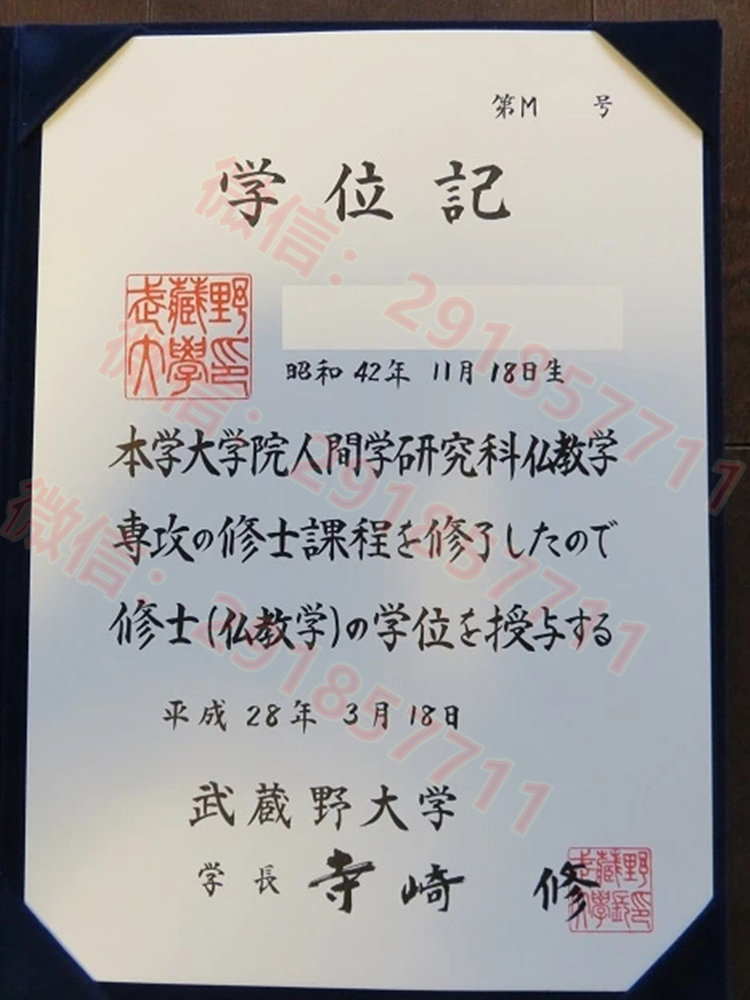 第M 号
学位記
武蔵野
大學印
昭和42年 11月18日生
本学大学院人間学研究科仏教学
専攻の修士課程を修了したので
修士(仏教学)の学位を授与する
平成28年3月18日
武蔵野大学
学長 寺崎 修
微信：2918577711
微信：2918577711
微信：2918577711